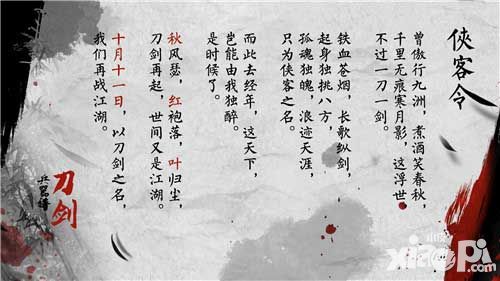 侠客令
曾傲行九洲，煮酒笑春秋，
千里无痕寒月影，这浮世，
不过一刀一剑。
铁血苍烟，长歌纵剑，
起身独挑八方，
孤魂独魄，浪迹天涯，
只为侠客之名。
而此去经年，这天下，
岂能由我独醉。
是时候了。
秋风瑟，红袍落，叶归尘，
刀剑再起，世间又是江湖。
十月十一日，以刀剑之名，
我们再战江湖。
刀剑
兵器谱
xiaopi.com